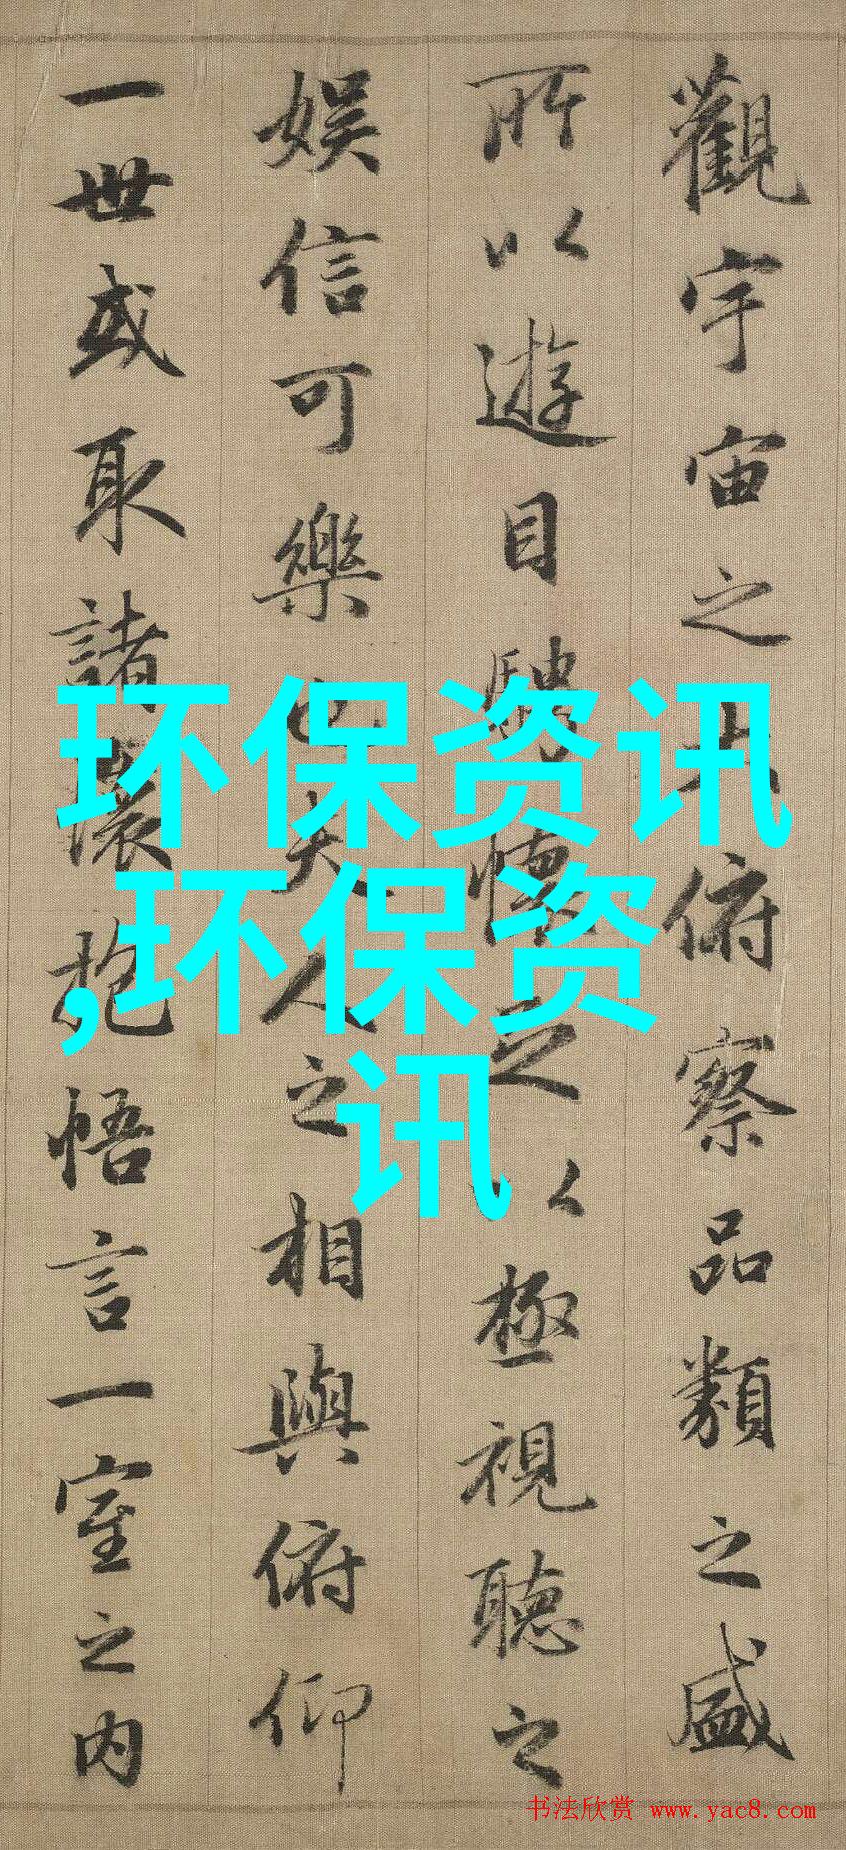 觀宇宙之大俯察品類之盛
所以遊目騁懷足以極視聽之
娛信可樂也夫人之相與俯仰
一世或取諸懷抱悟言一室之内
环保资讯
,环保资
讯
书法欣赏 www.yac8.com